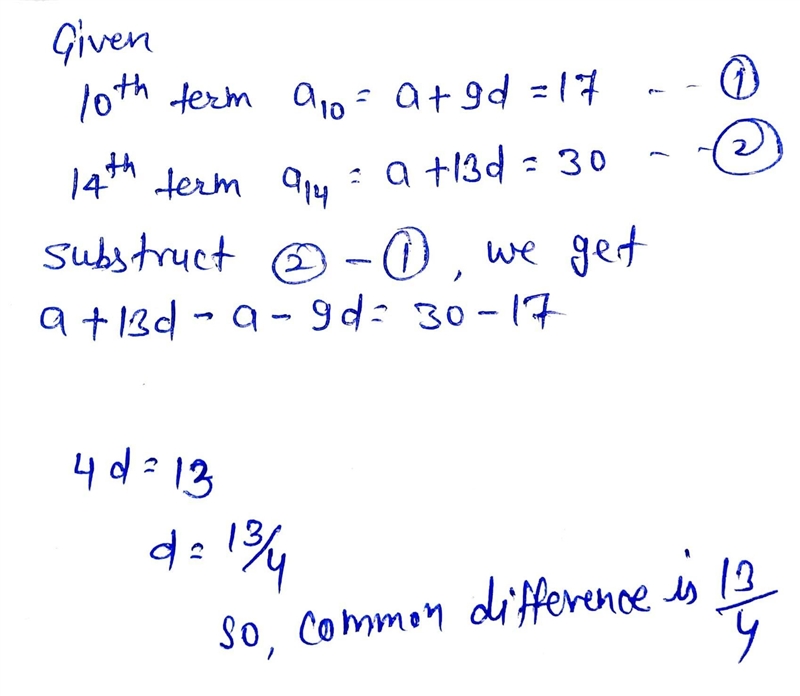 Given
10th term a10 = a + 9d = 17 - - ①
14th term a14 = a + 13d = 30 - - ②
substruct ② - ①, we get
a + 13d - a - 9d = 30 - 17
4d = 13
d = 13/4
so, common difference is 13/4